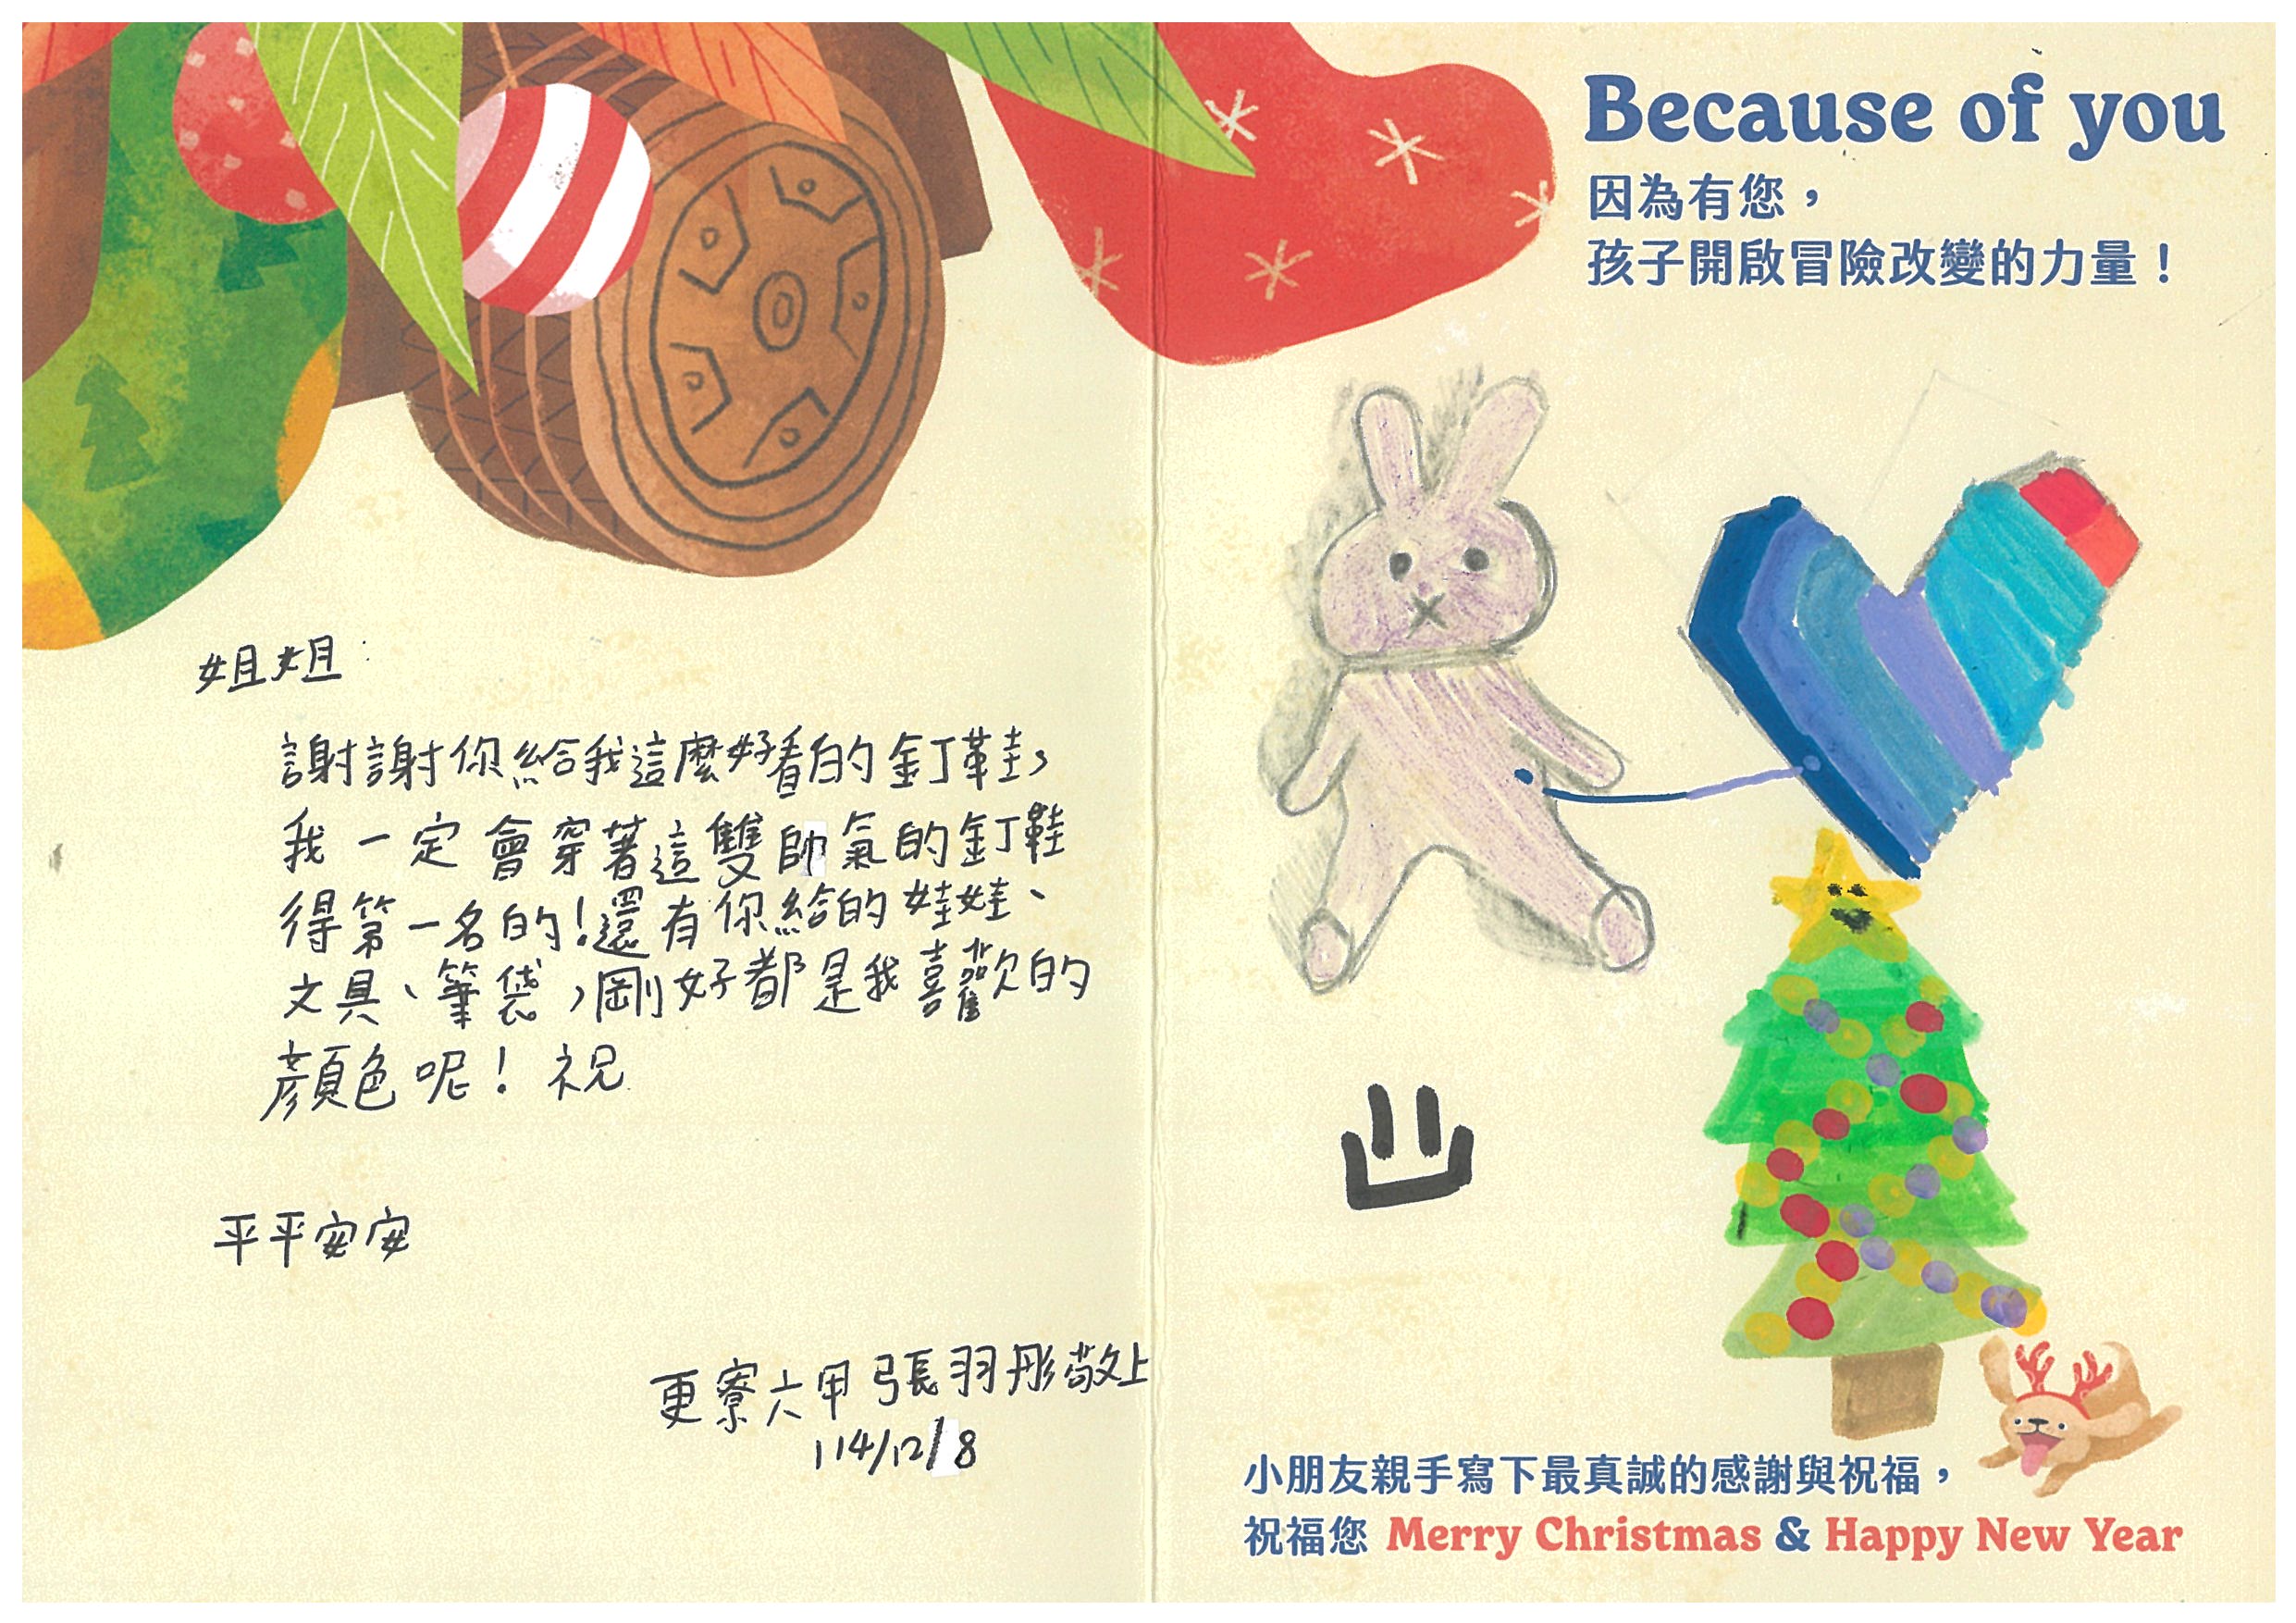 姐姐:
謝謝你給我這麼好看的釘鞋,
我一定會穿著這雙帥氣的釘鞋
得第一名的!還有你給的娃娃、
文具、筆袋,剛好都是我喜歡的
顏色呢!祝
平平安安
更寮六甲張羽彤敬上
114/12/8
Because of you
因為有您,
孩子開啟冒險改變的力量!
小朋友親手寫下最真誠的感謝與祝福,
祝福您 Merry Christmas & Happy New Year